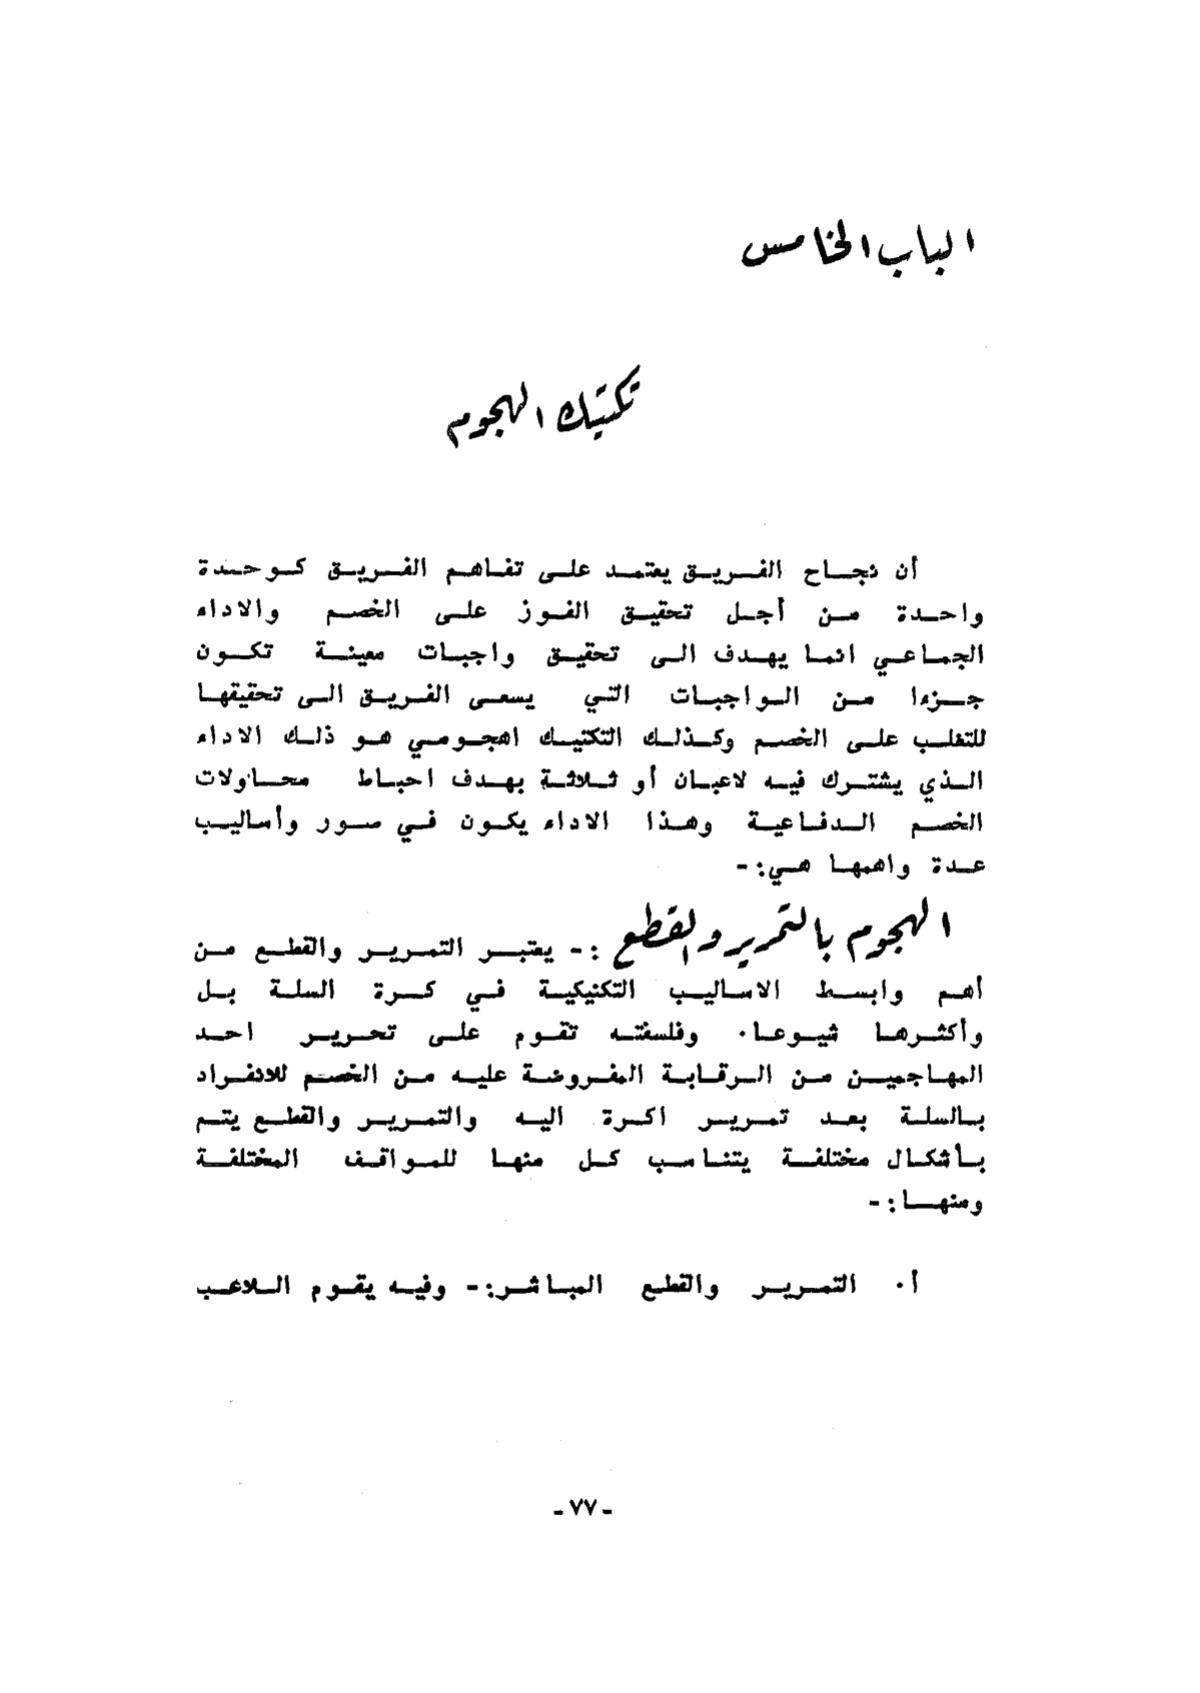 الباب الخامس
تكتيك الهجوم
أن نجاح الفريق يعتمد على تفاهم الفريق كوحدة
واحدة من أجل تحقيق الفوز على الخصم والاداء
الجماعي انما يهدف الى تحقيق واجبات معينة تكون
جزءا من الواجبات التي يسعى الفريق الى تحقيقها
للتغلب على الخصم وكذلك التكتيك اهجومي هو ذلك الاداء
الذي يشترك فيه لاعبان أو ثلاثة بهدف احباط محاولات
الخصم الدفاعية وهذا الاداء يكون في صور وأساليب
عدة واهمها هي:-
الهجوم بالتمرير والقطع :- يعتبر التمرير والقطع من
أهم وابسط الاساليب التكنيكية في كرة السلة بل
وأكثرها شيوعا. وفلسفته تقوم على تحرير احد
المهاجمين من الرقابة المفروضة عليه من الخصم للانفراد
بالسلة بعد تمرير اكرة اليه والتمرير والقطع يتم
بأشكال مختلفة يتناسب كل منها للمواقف المختلفة
ومنها:-
أ. التمرير والقطع المباشر:- وفيه يقوم اللاعب
-٧٧-